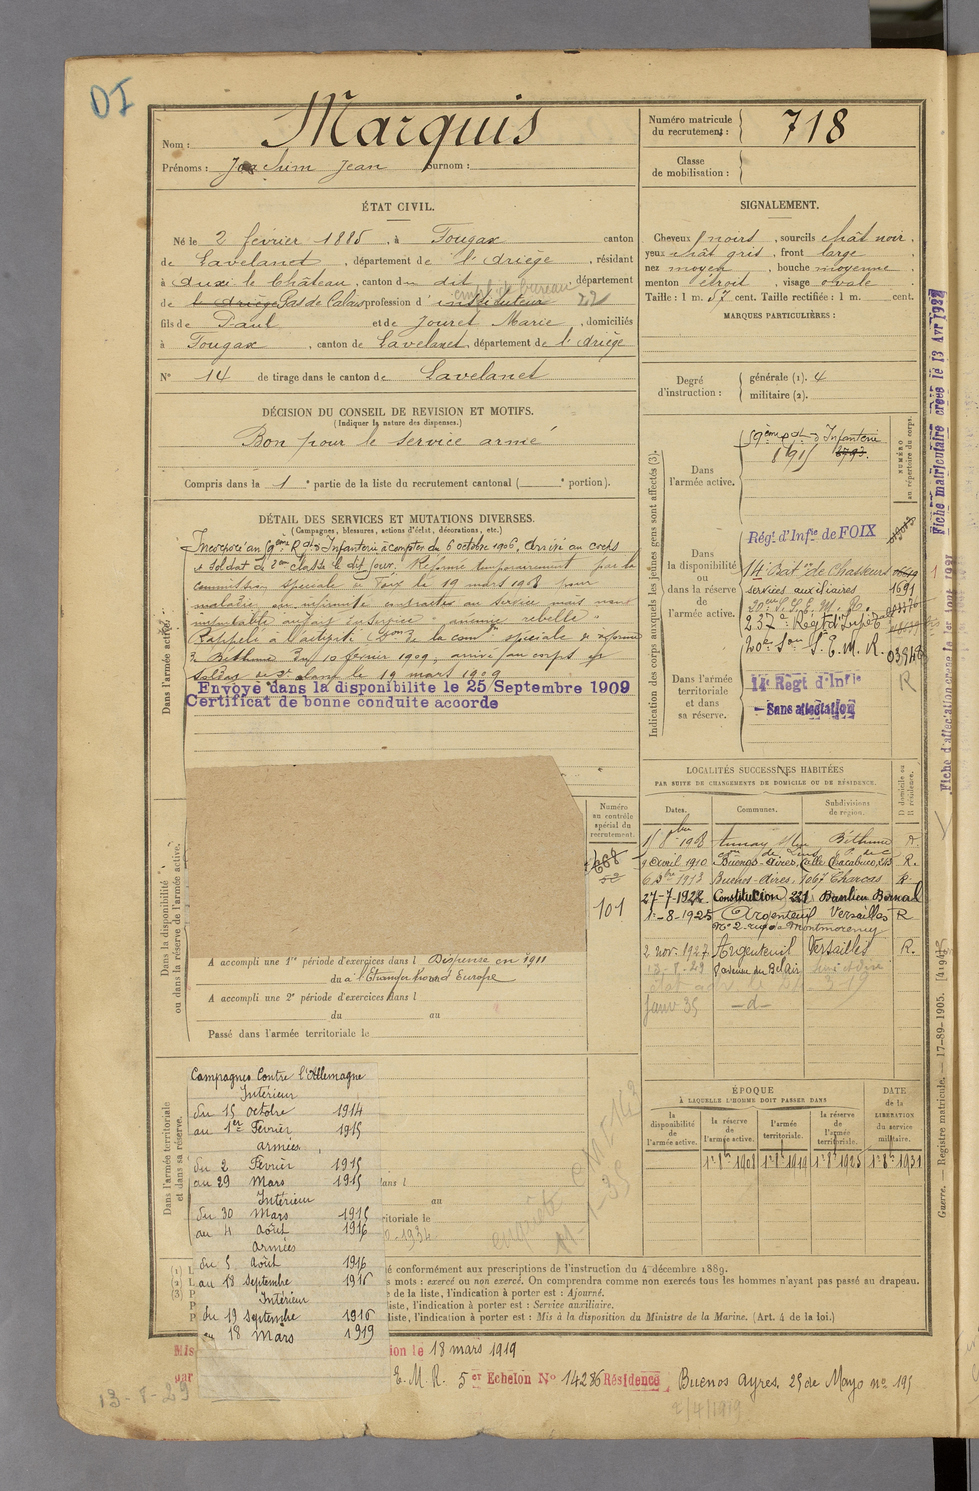 DI
Nom : Marquis
Prénoms : Joachim Jean Surnom :
Numéro matricule du recrutement : 718
Classe de mobilisation :
ÉTAT CIVIL.
Né le 2 février 1885, à Fougax canton
de Lavelanet, département de l'Ariège, résidant
à Auxi le Château, canton du dit département
de l'Ariège Pas de Calais profession d'instituteur
empl. de bureau 22
fils de Paul et de Jouret Marie, domiciliés
à Fougax, canton de Lavelanet, département de l'Ariège
N° 14 de tirage dans le canton de Lavelanet
SIGNALEMENT.
Cheveux noirs, sourcils chât noir,
yeux chât gris, front large,
nez moyen, bouche moyenne,
menton étroit, visage ovale
Taille : 1 m. 57 cent. Taille rectifiée : 1 m. cent.
MARQUES PARTICULIÈRES :
Degré d'instruction :
générale (1). 4
militaire (2).
DÉCISION DU CONSEIL DE REVISION ET MOTIFS.
(Indiquer la nature des dispenses.)
Bon pour le service armé
Compris dans la 1e partie de la liste du recrutement cantonal ( e portion).
DÉTAIL DES SERVICES ET MUTATIONS DIVERSES.
(Campagnes, blessures, actions d'éclat, décorations, etc.)
Dans l'armée active.
Incorporé au 59ème Rgt d'Infanterie à compter du 6 octobre 1906, arrivé au corps
& soldat de 2ème classe le dit jour. Réformé temporairement par la
commission spéciale de Foix le 19 mars 1908 pour
maladie ou infirmité contractée au service mais non
imputable au service
Rappelé à l'activité de la comon spéciale de réforme
de Béthune du 10 février 1909, arrivé au corps &
soldat de 2e classe le 19 mars 1909
Envoyé dans la disponibilite le 25 Septembre 1909
Certificat de bonne conduite accorde
Indication des corps auxquels les jeunes gens sont affectés (3).
NUMÉRO au répertoire du corps.
Dans l'armée active.
59ème Rgt d'Infanterie
8195
Dans la disponibilité ou dans la réserve de l'armée active.
Rég.t d'Infie de FOIX
14e Baton de Chasseurs
services auxiliaires 1691
20eme S. S. E. M. R.
237e Régt d'Infie
20e Son S. E. M. R. 03948
Dans l'armée territoriale et dans sa réserve.
14e Régt d'Infie
Sans affectation
R
Fiche matriculaire créée le 13 Avr 1922
LOCALITÉS SUCCESSIVES HABITÉES
PAR SUITE DE CHANGEMENTS DE DOMICILE OU DE RÉSIDENCE.
Dates. Communes. Subdivisions de région. D domicile ou R résidence.
9 Avril 1910 Buenos-Aires, Calle Chacabuco, 543 R.
6 Xbre 1913 Buenos-Aires, 1067 Charcas R.
27-7-1922 Constitucion 221 Basilieu Bernal
1-8-1925 Argenteuil Versailles R
N° 2 rue de Montmorency
2 nov. 1927 Argenteuil Versailles R.
13-8-29 9 avenue du Bel Air Seine et Oise
Janv 35 —d—
Dans la disponibilité ou dans la réserve de l'armée active.
Numéro au contrôle spécial du recrutement.
668
101
A accompli une 1re période d'exercices dans l Dispensé en 1911
du à l'Etranger hors d'Europe
A accompli une 2e période d'exercices dans l
du au
Passé dans l'armée territoriale le
ÉPOQUE À LAQUELLE L'HOMME DOIT PASSER DANS
la disponibilité de l'armée active.
la réserve de l'armée active.
l'armée territoriale.
la réserve de l'armée territoriale.
DATE de la LIBÉRATION du service militaire.
1er 8bre 1908 1er 8bre 1919 1er 8bre 1925 1er 8bre 1931
Dans l'armée territoriale et dans sa réserve.
Campagnes Contre l'Allemagne
Intérieur
du 15 octobre 1914
au 1er Février 1915
armées
du 2 Février 1915
au 29 Mars 1915
Intérieur
du 30 Mars 1915
au 4 Août 1916
Armées
du 5 Août 1916
au 18 Septembre 1916
Intérieur
du 19 septembre 1916
au 18 Mars 1919
dans l
au
ritoriale le
enquête 11-1-35
é conformément aux prescriptions de l'instruction du 4 décembre 1889.
s mots : exercé ou non exercé. On comprendra comme non exercés tous les hommes n'ayant pas passé au drapeau.
e de la liste, l'indication à porter est : Ajourné.
liste, l'indication à porter est : Service auxiliaire.
liste, l'indication à porter est : Mis à la disposition du Ministre de la Marine. (Art. 4 de la loi.)
Mis
ion le 18 mars 1919
par
E. M. R. 5er Echelon N° 14286 Résidence Buenos Ayres, 25 de Mayo no 195
2/4/1919
13-8-29
Guerre. — Registre matricule. — 17-89-1905.